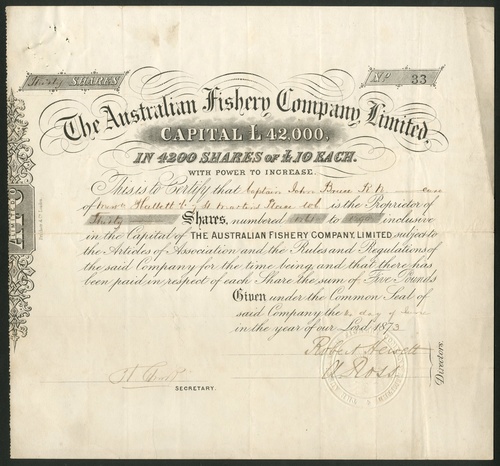 Thirty SHARES
No 33
The Australian Fishery Company, Limited,
CAPITAL £42,000,
IN 4200 SHARES OF £10 EACH.
WITH POWER TO INCREASE.
This is to Certify that Captain John Bruce R.N. care
of Hallett & St Martins Place is the Proprietor of
Thirty Shares, numbered to inclusive
in the Capital of THE AUSTRALIAN FISHERY COMPANY, LIMITED, subject to
the Articles of Association and the Rules and Regulations of
the said Company for the time being, and that there has
been paid in respect of each Share the sum of Five Pounds
Given under the Common Seal of
said Company the day of
in the year of our Lord 1873.
Robert Hewett
Ross
Directors.
SECRETARY.